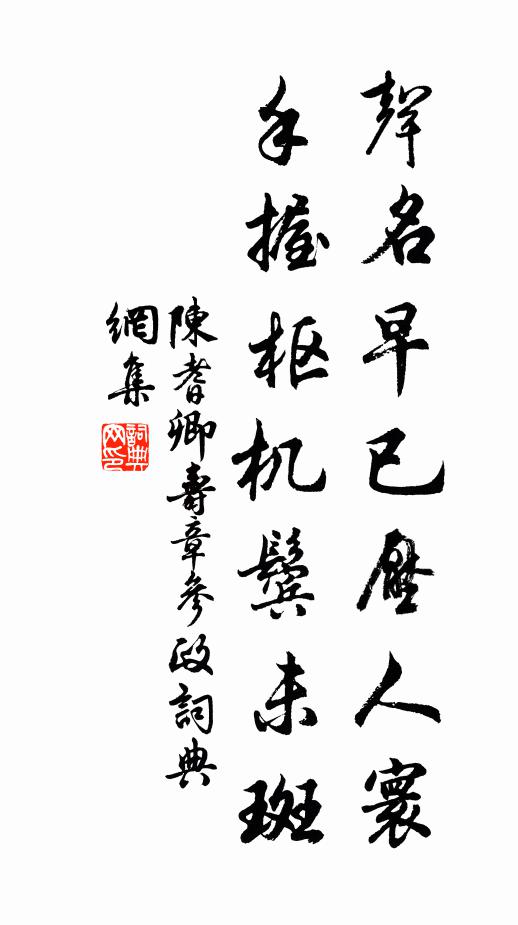 聲名早已壓人寰
手握枢机鬓未斑
陳耆卿壽章參政詞典
網集
詞典
网印